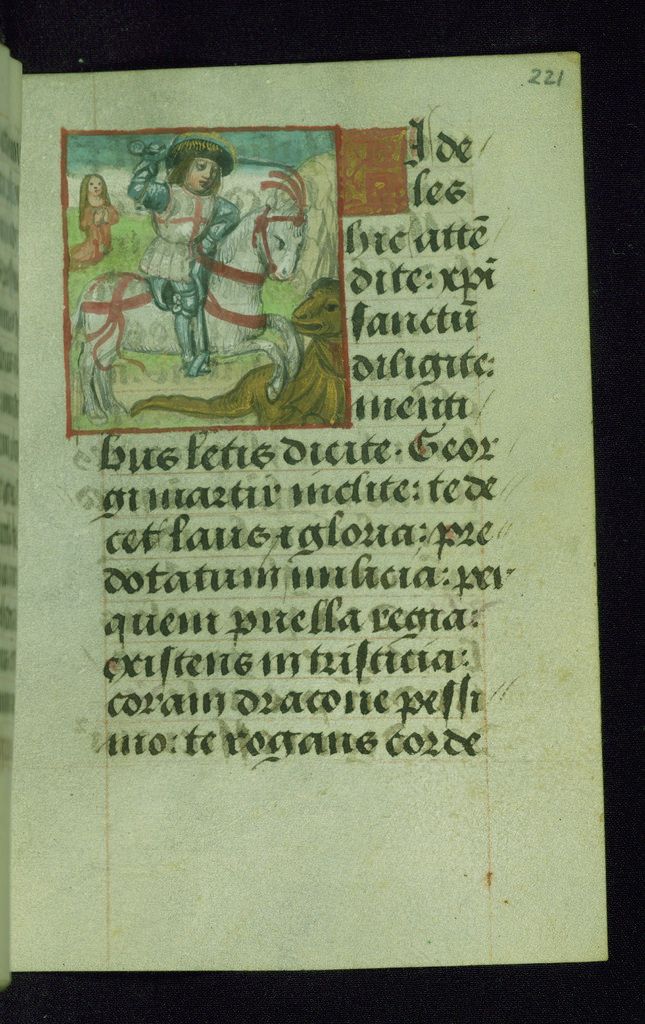 221
Fide
les
hic attē
dite: xpi
sanctū
diligite:
menti
bus letis dicite. Geor
gi martir inclite: te de
cet laus ⁊ gloria: pre
dotatum milicia: per
quem puella regia:
existens in tristicia:
coram dracone pessi
mo: te rogans corde